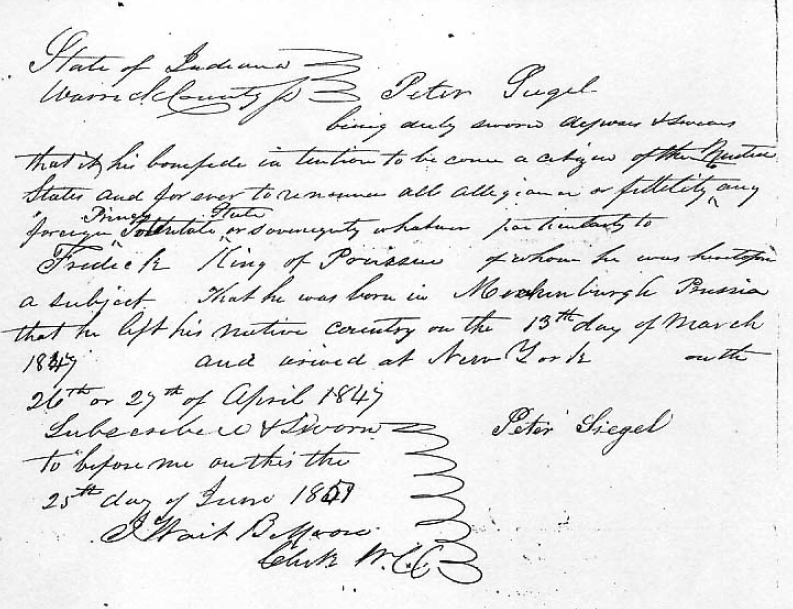 State of Indiana
Warrick County ss Peter Siegel
being duly sworn deposes & swears
that it is his bonefide intention to be come a citizen of the United
States and for ever to renounce all allegiance or fidelity any
Prince State
foreign Potentate or sovereignty whatever particularly to
Fredick King of Prussia of whom he was heretofor
a subject That he was born in Mecklenburgh Prussia
that he left his native country on the 13th day of March
1847 and arived at New York on the
26th or 27th of April 1847
Subscribed & Sworn Peter Siegel
to before me on this the
25th day of June 1851
B. Moore
Clerk W.C.C.